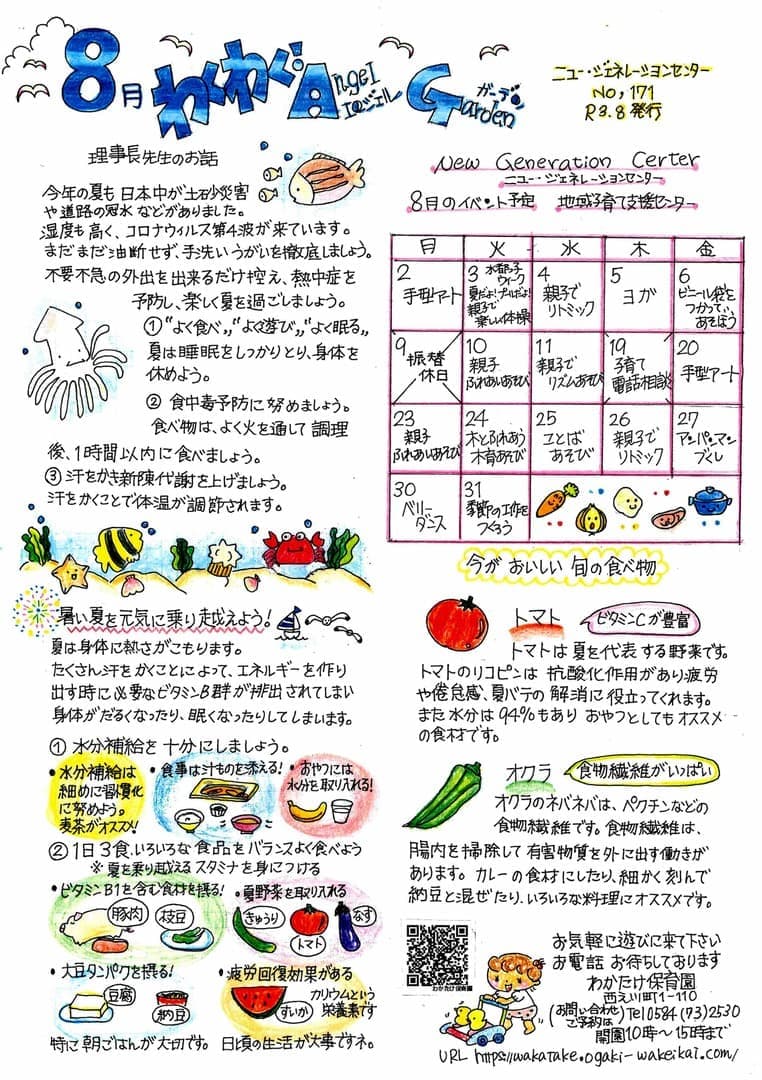 8月 わくわく Angel エンジェル Garden ガーデン
ニュー・ジェネレーションセンター
NO,171
R3.8発行
理事長先生のお話
今年の夏も日本中が土砂災害
や道路の冠水などがありました。
湿度も高く、コロナウィルス第4波が来ています。
まだまだ油断せず、手洗いうがいを徹底しましょう。
不要不急の外出を出来るだけ控え、熱中症を
予防し、楽しく夏を過ごしましょう。
①"よく食べ""よく遊び""よく眠る"
夏は睡眠をしっかりとり、身体を
休めよう。
② 食中毒予防に努めましょう。
食べ物は、よく火を通して調理
後、1時間以内に食べましょう。
③汗をかき新陳代謝を上げましょう。
汗をかくことで体温が調節されます。
暑い夏を元気に乗り越えよう!
夏は身体に熱さがこもります。
たくさん汗をかくことによって、エネルギーを作り
出す時に必要なビタミンB群が排出されてしまい
身体がだるくなったり、眠くなったりしてしまいます。
① 水分補給を十分にしましょう。
・水分補給は
細めに習慣化
に努めよう。
麦茶がオススメ!
・食事は汁ものを添える!
・おやつには
水分を取り入れる!
② 1日3食、いろいろな食品をバランスよく食べよう
※夏を乗り越えるスタミナを身につける
・ビタミンB1を含む食材を摂る!
豚肉
枝豆
・夏野菜を取り入れる
きゅうり
トマト
なす
・大豆タンパクを摂る!
豆腐
納豆
・疲労回復効果がある
カリウムという
栄養素です
すいか
特に朝ごはんが大切です。 日頃の生活が大事ですネ。
New Generation Certer
ニュー・ジェネレーションセンター
8月のイベント予定 地域子育て支援センター
月 火 水 木 金
2
手型アート
3 水都っ子
ウィーク
夏だよ!プールだよ!
親子で
楽しい体操
4
親子で
リトミック
5
ヨガ
6
ビニール袋を
つかって
あそぼう
9
振替
休日
10
親子
ふれあいあそび
11
親子で
リズムあそび
19
子育て
電話相談
20
手型アート
23
親子
ふれあいあそび
24
木とふれあう
木育あそび
25
ことば
あそび
26
親子で
リトミック
27
アンパンマン
づくし
30
ベリー
ダンス
31
季節の工作を
つくろう
今がおいしい旬の食べ物
トマト
ビタミンCが豊富
トマトは夏を代表する野菜です。
トマトのリコピンは抗酸化作用があり疲労
や倦怠感、夏バテの解消に役立ってくれます。
また水分は94%もありおやつとしてもオススメ
の食材です。
オクラ
食物繊維がいっぱい
オクラのネバネバは、ペクチンなどの
食物繊維です。食物繊維は、
腸内を掃除して有害物質を外に出す働きが
あります。カレーの食材にしたり、細かく刻んで
納豆と混ぜたり、いろいろな料理にオススメです。
わかたけ保育園
お気軽に遊びに来て下さい
お電話お待ちしております
わかたけ保育園
西之川町1-110
(お問い合わせ
ご予約は)
Tel0584(73)2530
開園10時〜15時まで
URL https://wakatake.ogaki-wakeikai.com/